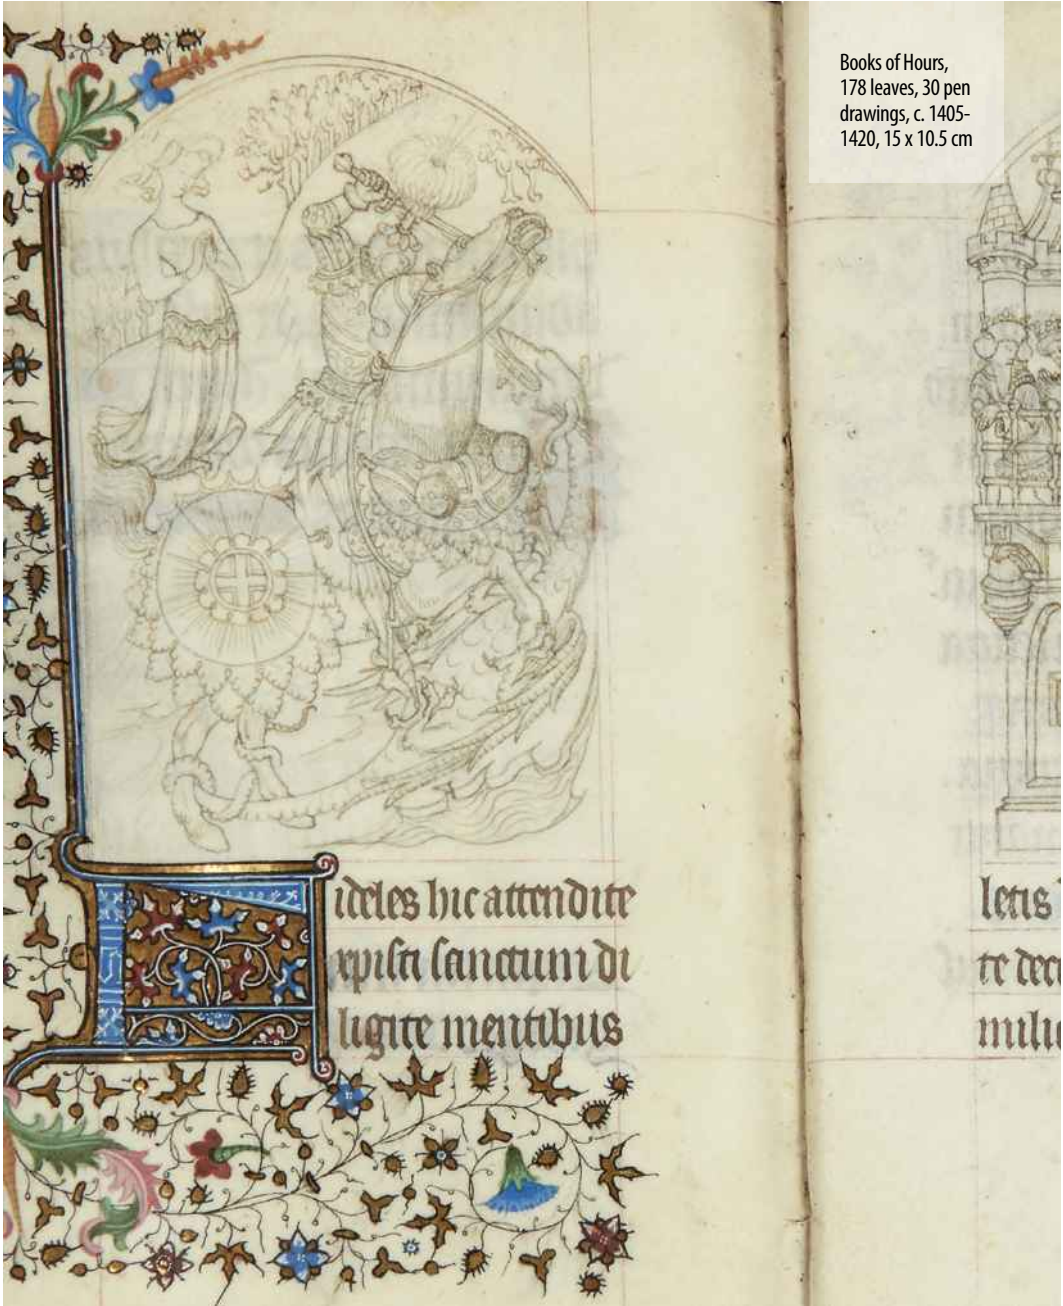 Books of Hours,
178 leaves, 30 pen
drawings, c. 1405-
1420, 15 x 10.5 cm
Fideles hic attendite
xpisti sanctum di
ligite mentibus
letis
te dec
mili